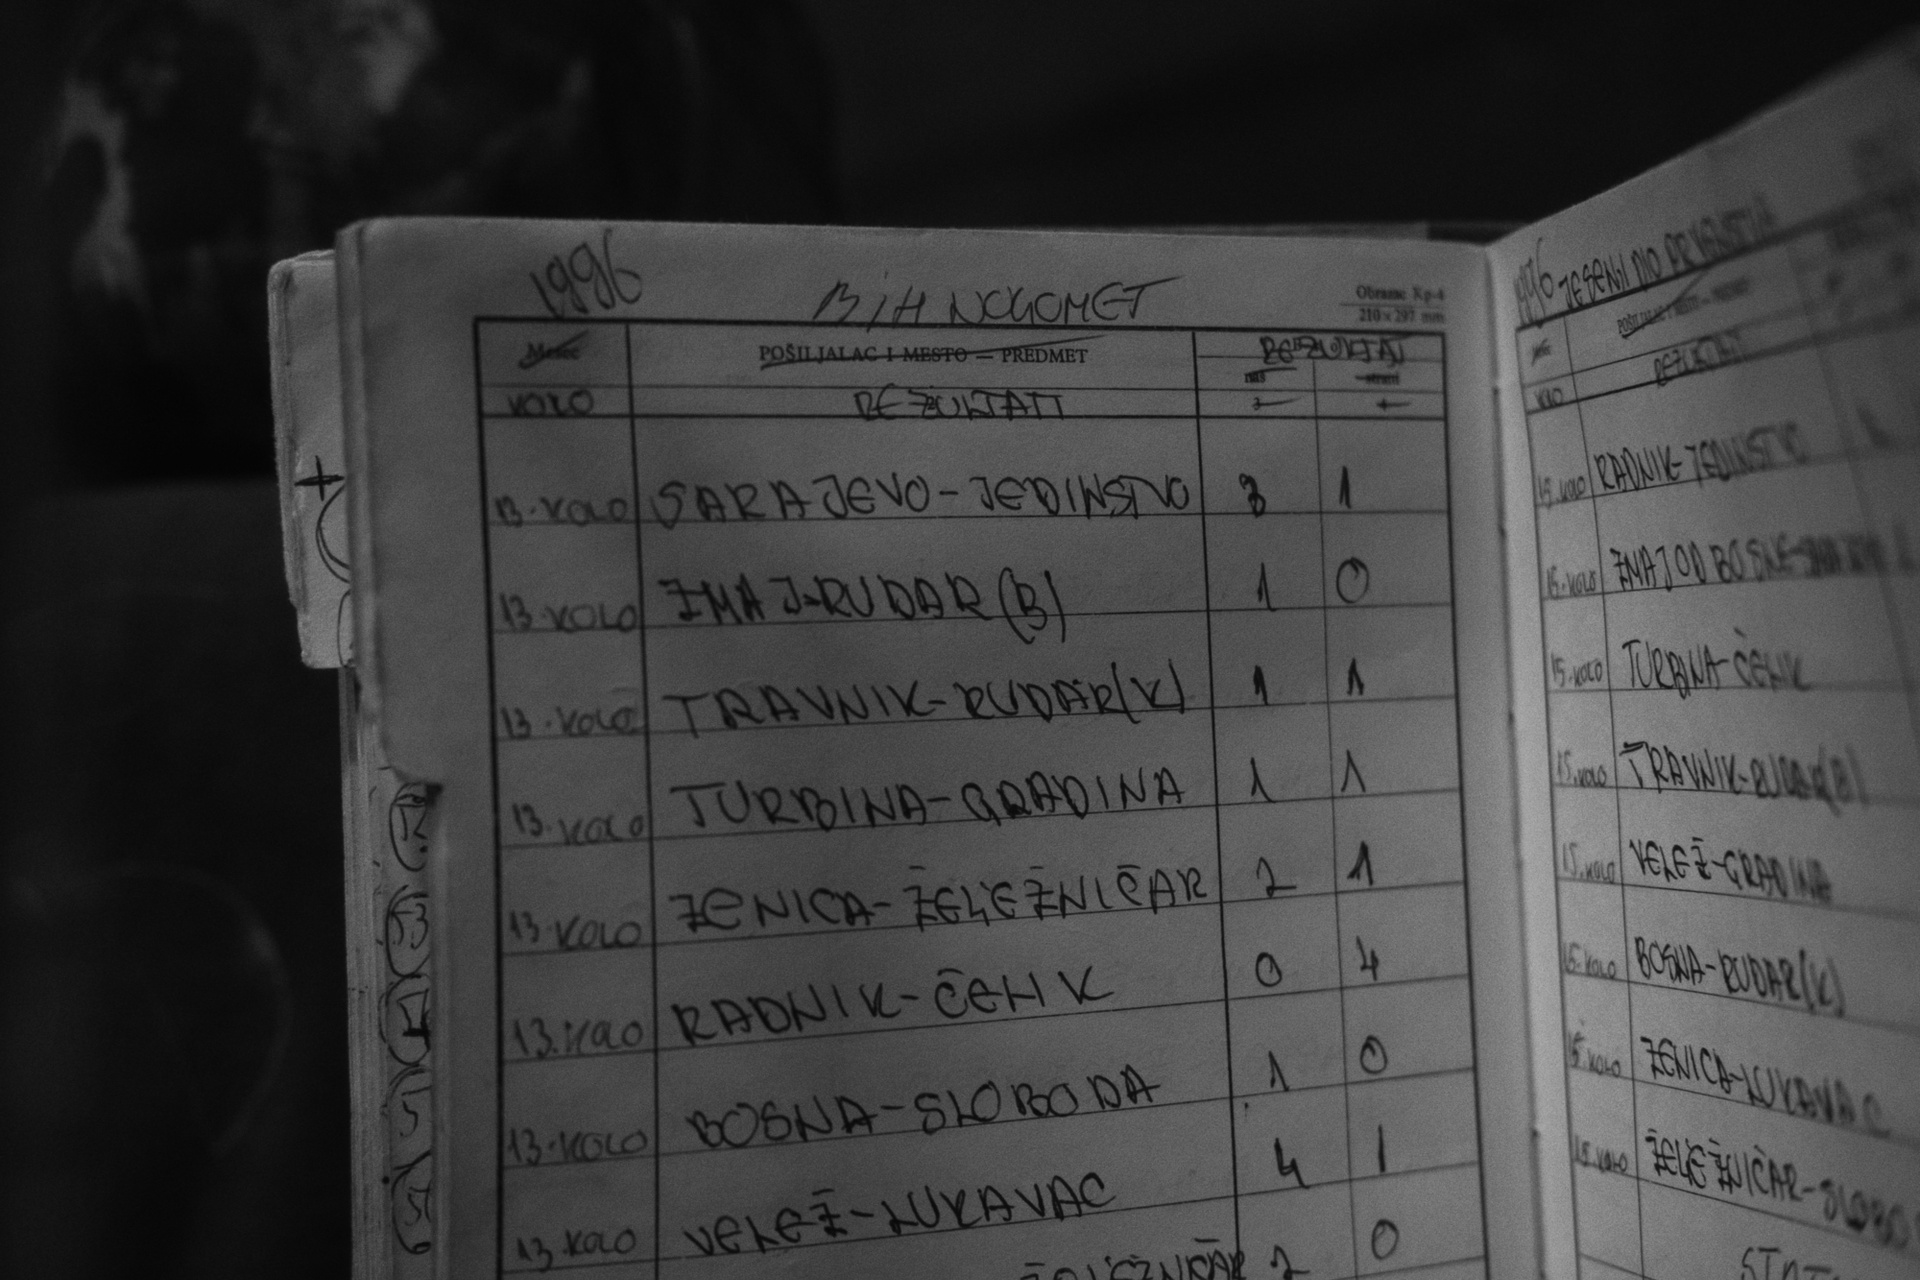 1996
BIH NOGOMET
Obrazac Kp-4
210x297 mm
Mesec POŠILJALAC I MESTO — PREDMET REZULTATI
naš strani
KOLO REZULTATI
13. KOLO SARAJEVO-JEDINSTVO 3 1
13. KOLO ZMAJ-RUDAR (B) 1 0
13. KOLO TRAVNIK-RUDAR(K) 1 1
13. KOLO TURBINA-GRADINA 1 1
13. KOLO ZENICA-ŽELJEZNIČAR 2 1
13. KOLO RADNIK-ČELIK 0 4
13. KOLO BOSNA-SLOBODA 1 0
13. KOLO VELEŽ-LUKAVAC 4 1
2 0
53
1996 JESENJI DIO PRVENSTVA
POŠILJALAC I MESTO — PREDMET
KOLO REZULTATI
15. KOLO RADNIK-JEDINSTVO
15. KOLO ZMAJ OD BOSNE-
15. KOLO TURBINA-ČELIK
15. KOLO TRAVNIK-RUDAR(B)
15. KOLO VELEŽ-GRADINA
15. KOLO BOSNA-RUDAR(K)
15. KOLO ZENICA-LUKAVAC
15. KOLO ŽELJEZNIČAR-SLOBO